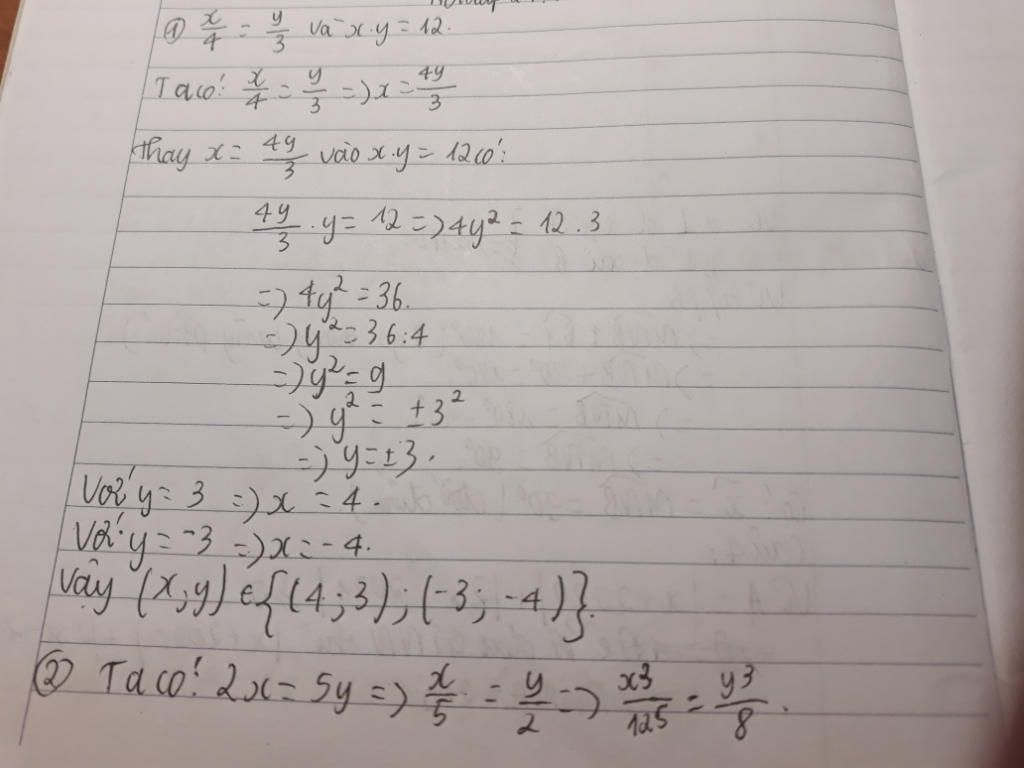 ① x/4 = y/3 và x.y = 12.
Ta có: x/4 = y/3 => x = 4y/3
Thay x = 4y/3 vào x.y = 12 có:
4y/3 . y = 12 => 4y² = 12 . 3
=> 4y² = 36.
=> y² = 36:4
=> y² = 9
=> y² = ±3²
=> y = ±3.
Với y = 3 => x = 4.
Với y = -3 => x = -4.
Vậy (x;y) ∈ {(4;3);(-3;-4)}.
② Ta có: 2x = 5y => x/5 = y/2 => x3/125 = y3/8.